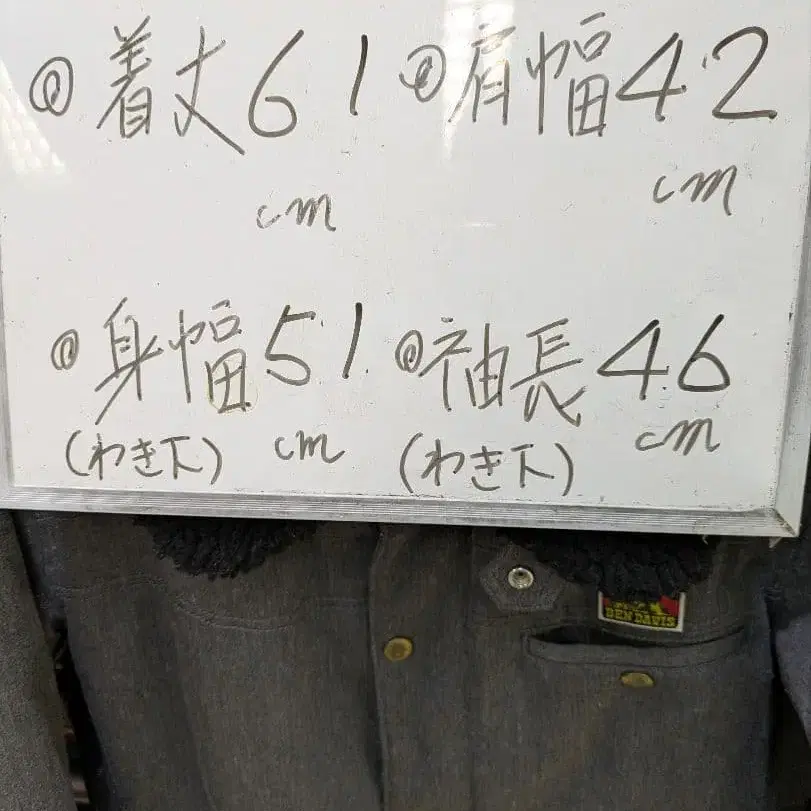 ◎着丈61cm
◎肩幅42cm
◎身幅51cm
(わき下)
◎袖長46cm
(わき下)
BEN DAVIS